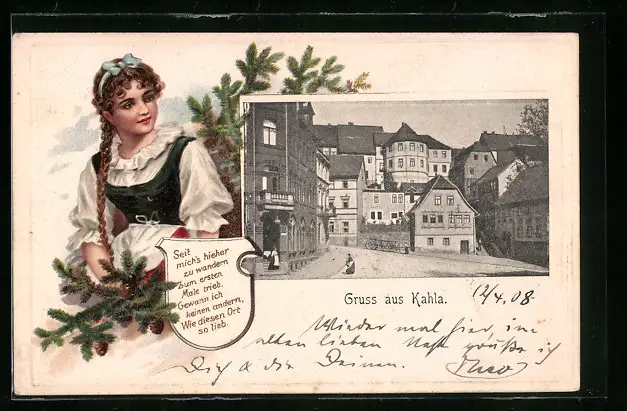 Seit
mich's hieher
zu wandern
zum ersten
Male trieb,
Gewann ich
keinen andern,
Wie diesen Ort
so lieb.
Gruss aus Kahla.
12/4.08.
Wieder mal hier, im
alten lieben Nest grüße ich
Dich & die Deinen.